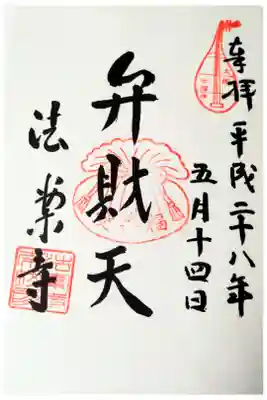 奉拝
平成二十八年
五月十四日
弁財天
法楽寺